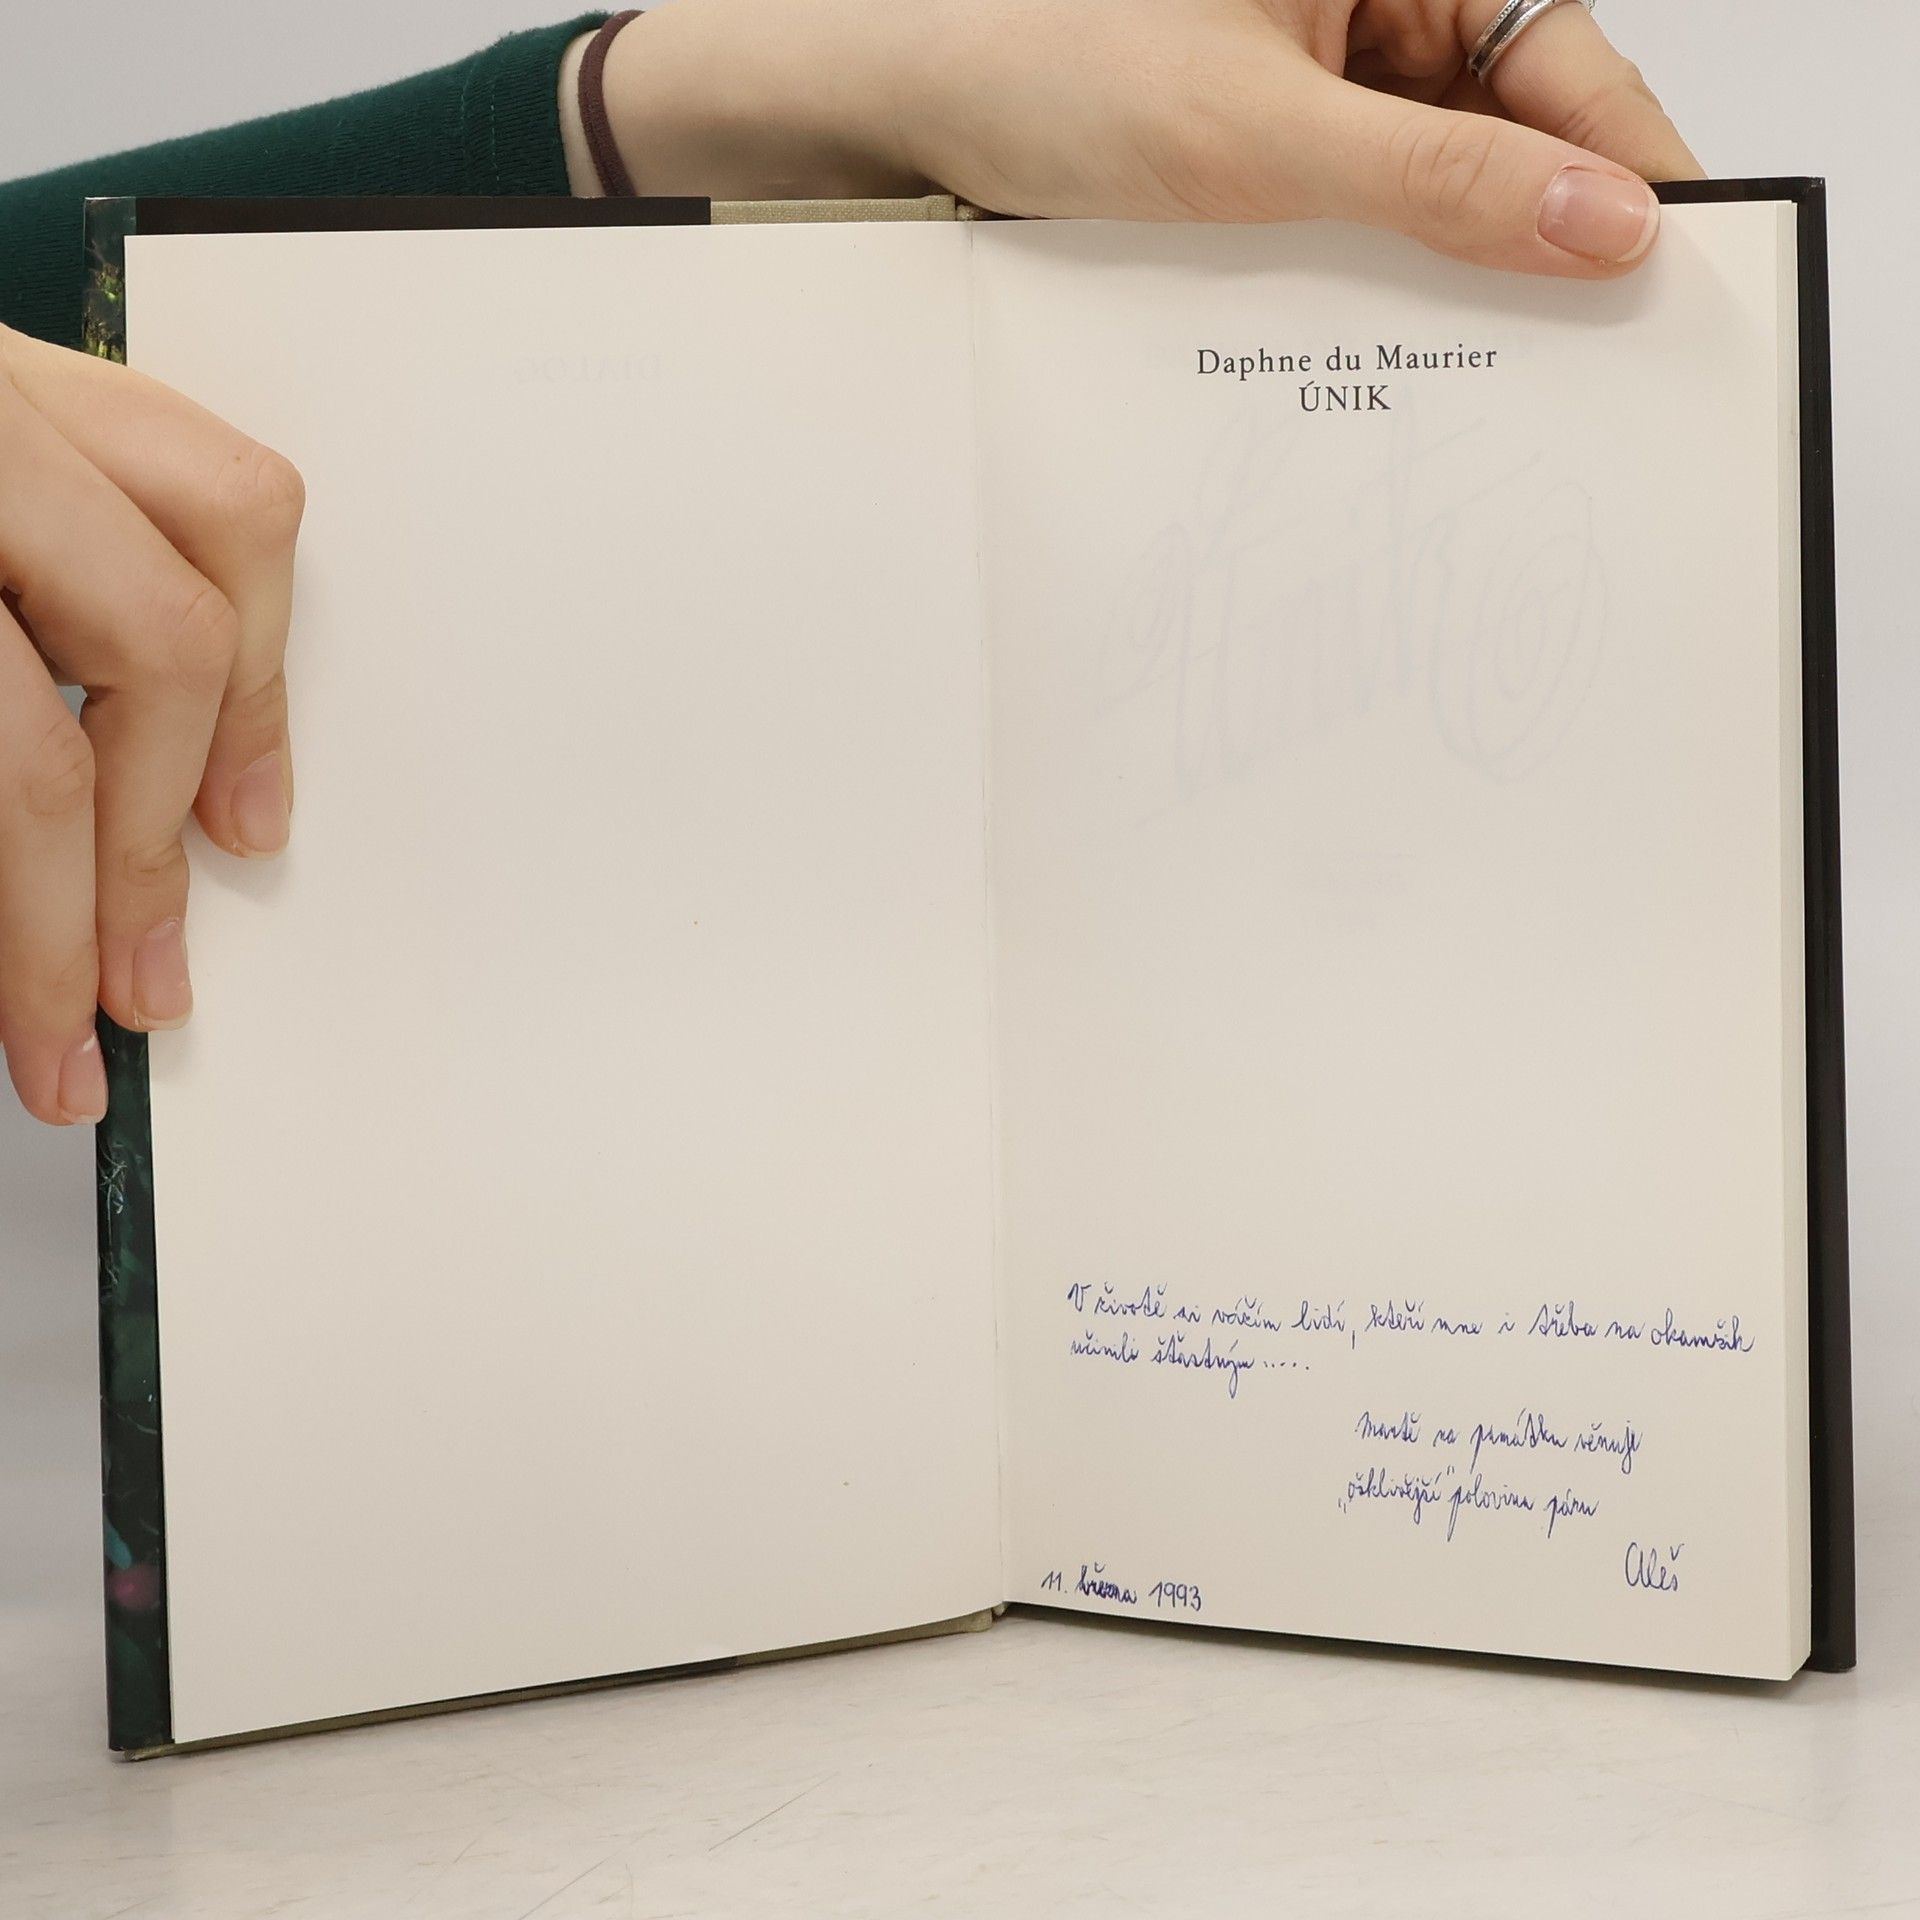 Daphne du Maurier
ÚNIK
V životě si vážím lidí, kteří mne i třeba na okamžik
učinili šťastným .....
Martě na památku věnuje
„ošklivější" polovina páru
Aleš
11. března 1993